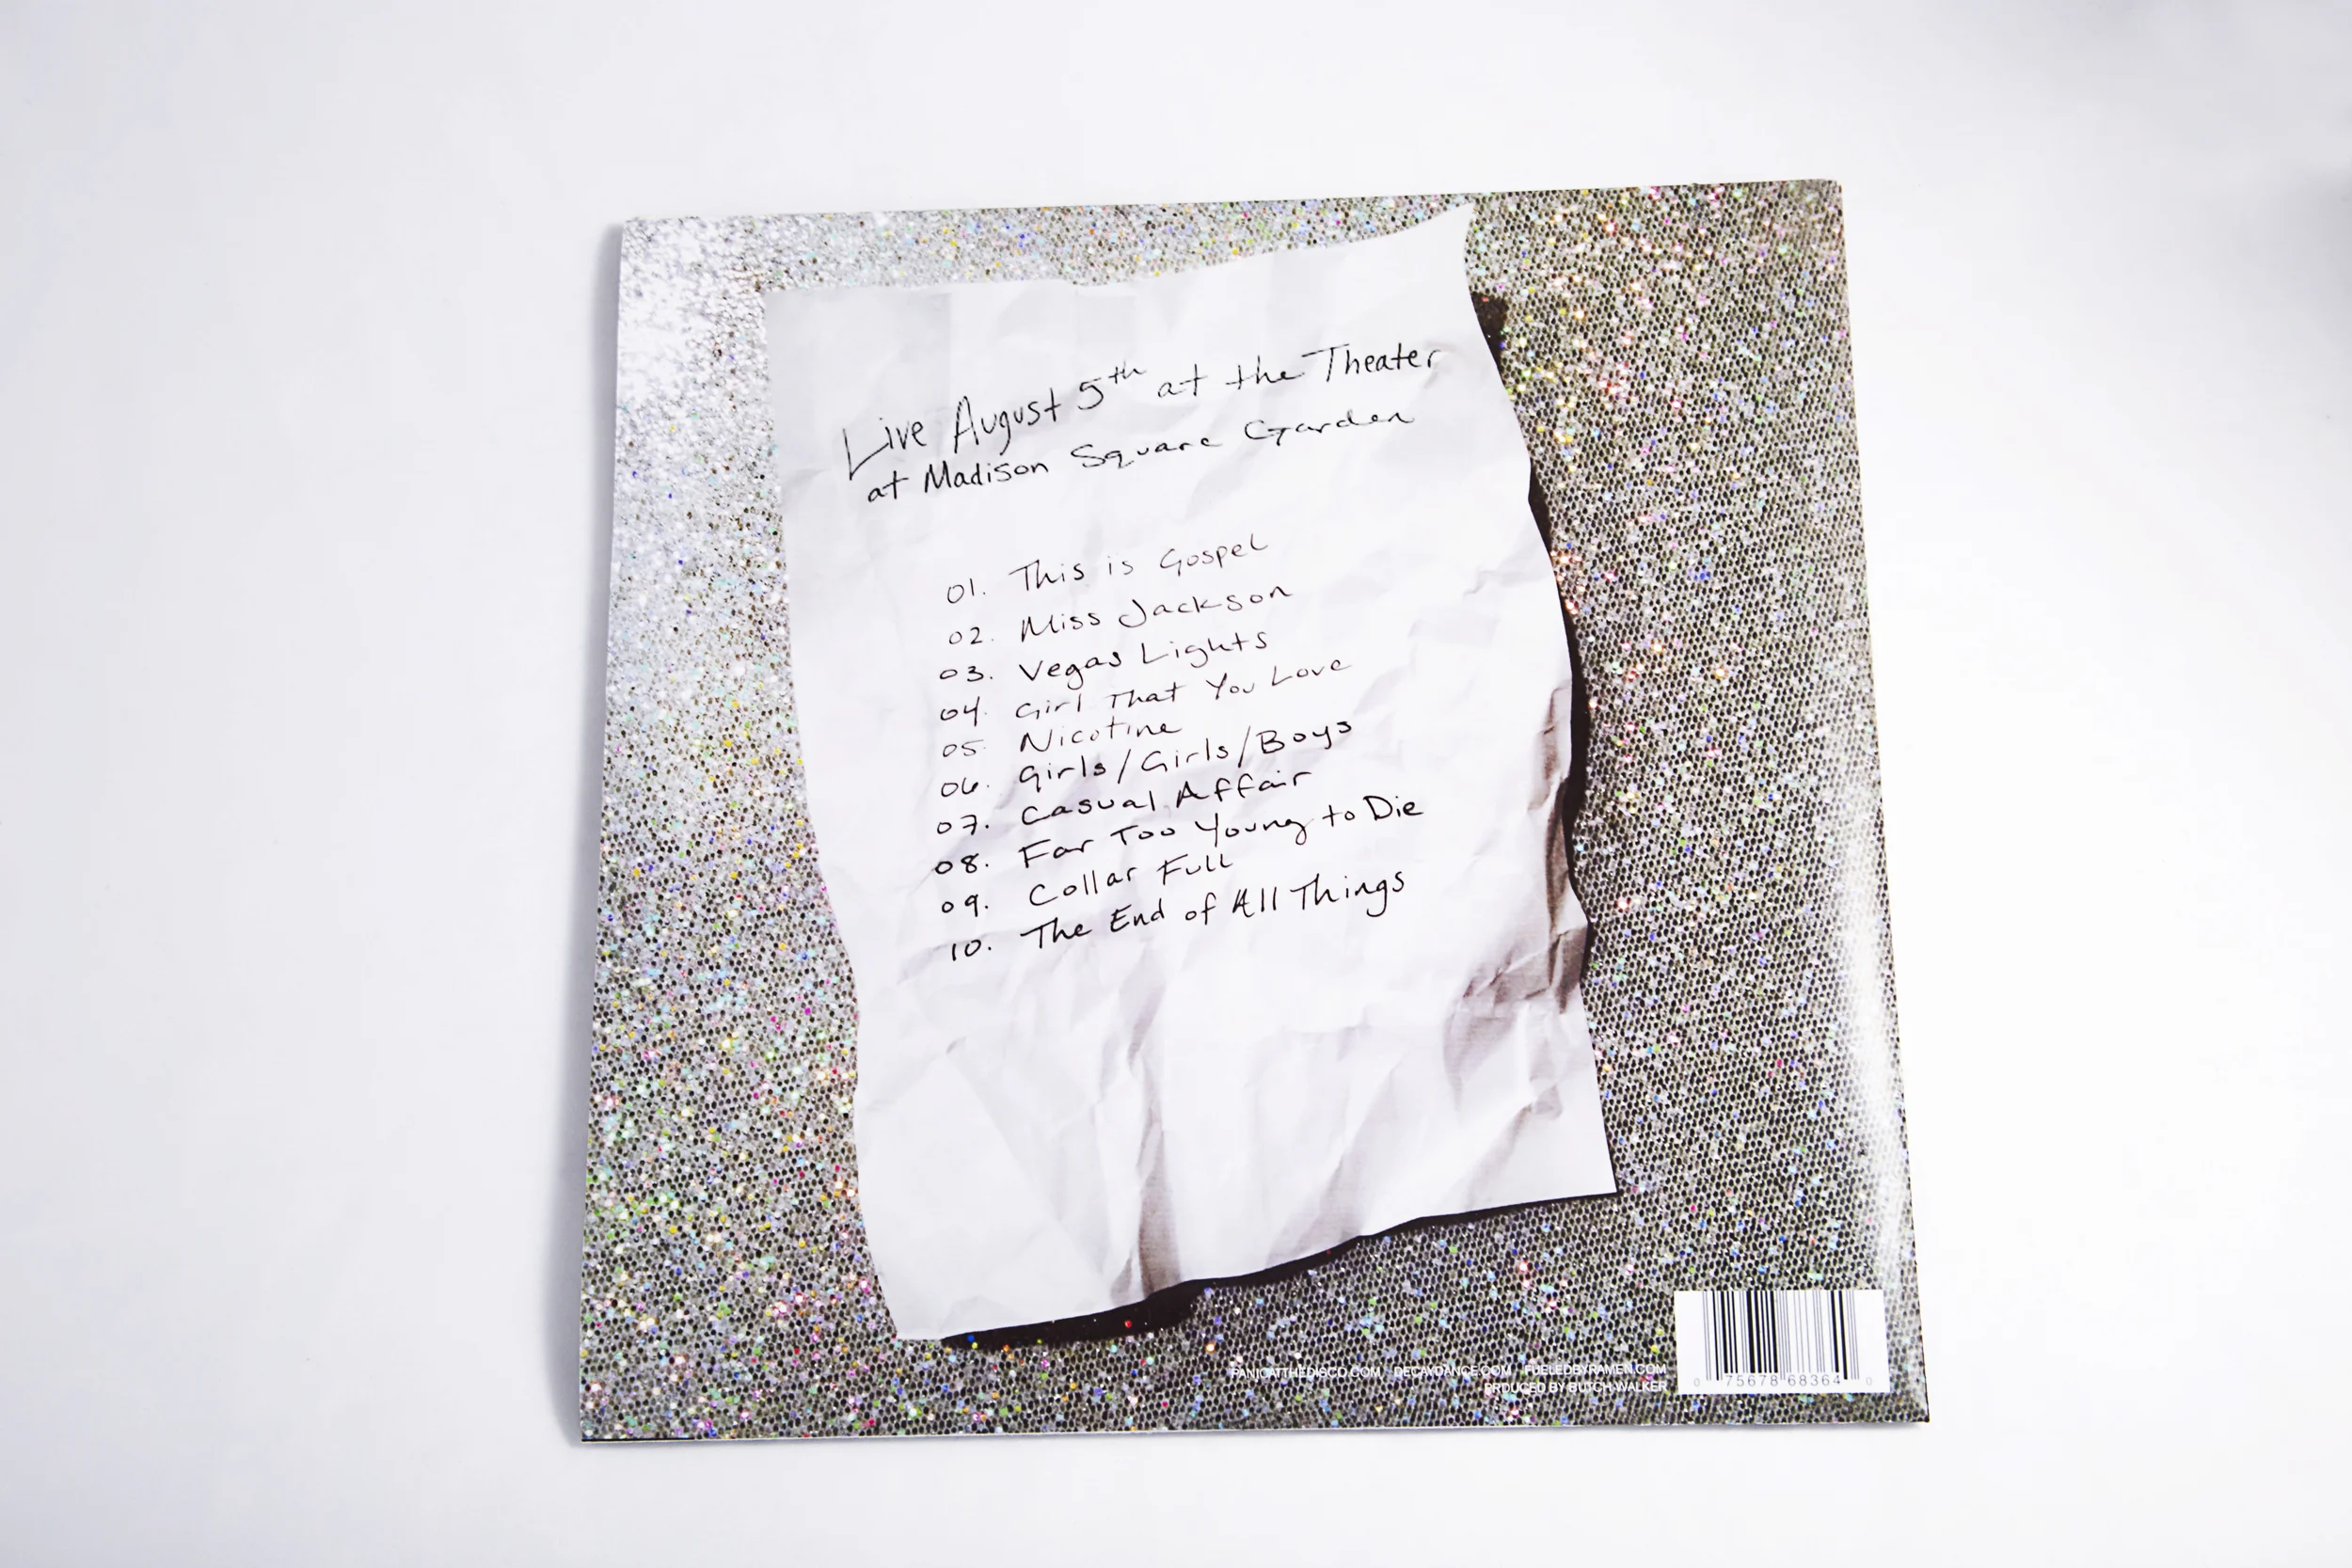 Live August 5th at the Theater
at Madison Square Garden
01. This is Gospel
02. Miss Jackson
03. Vegas Lights
04. Girl That You Love
05. Nicotine
06. Girls/Girls/Boys
07. Casual Affair
08. Far Too Young to Die
09. Collar Full
10. The End of All Things
PANICATTHEDISCO.COM DECAYDANCE.COM FUELEDBYRAMEN.COM
PRODUCED BY BUTCH WALKER
0 75678 68364 0